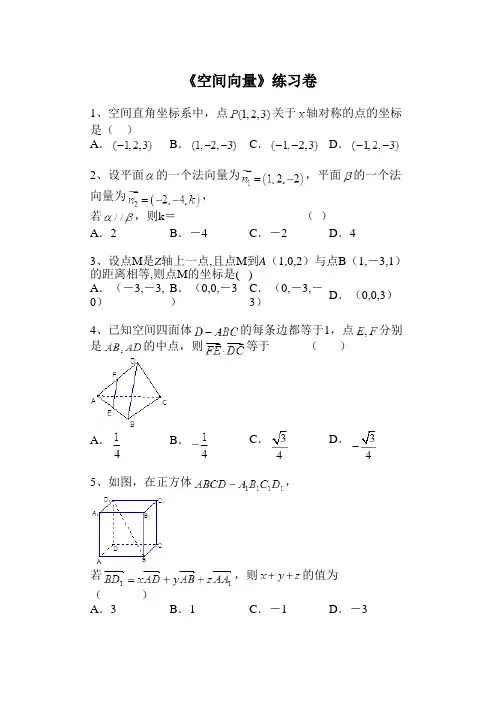 《空间向量》练习卷
1、空间直角坐标系中，点P(1,2,3)关于x轴对称的点的坐标
是（ ）
A．(−1,2,3) B．(1,−2,−3) C．(−1,−2,3) D．(−1,2,−3)
2、设平面α的一个法向量为n₁=(1,2,−2)，平面β的一个法
向量为n₂=(−2,−4,k)，
若α//β，则k＝ （ ）
A．2 B．－4 C．－2 D．4
3、设点M是Z轴上一点,且点M到A（1,0,2）与点B（1,－3,1）
的距离相等,则点M的坐标是( )
A．（－3,－3,0） B．（0,0,－3） C．（0,－3,－3） D．（0,0,3）
4、已知空间四面体D−ABC的每条边都等于1，点E,F分别
是AB,AD的中点，则FE·DC等于 （ ）
D
F
A
C
E
B
A．1/4 B．−1/4 C．√3/4 D．−√3/4
5、如图，在正方体ABCD−A₁B₁C₁D₁，
D₁ C₁
A₁ B₁
D C
A B
若BD₁=xAD+yAB+zAA₁，则x+y+z的值为
（ ）
A．3 B．1 C．－1 D．－3